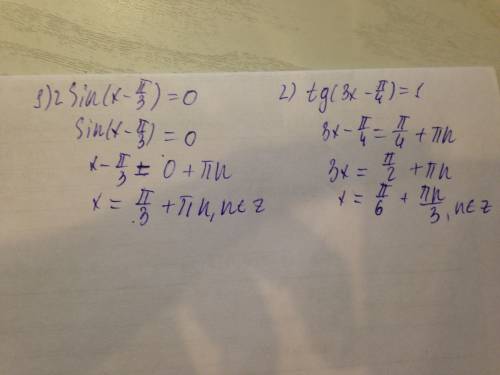 1) 2 Sin(x - π/3) = 0
Sin(x - π/3) = 0
x - π/3 = 0 + πn
x = π/3 + πn, n∈z
2) tg(3x - π/4) = 1
3x - π/4 = π/4 + πn
3x = π/2 + πn
x = π/6 + πn/3, n∈z